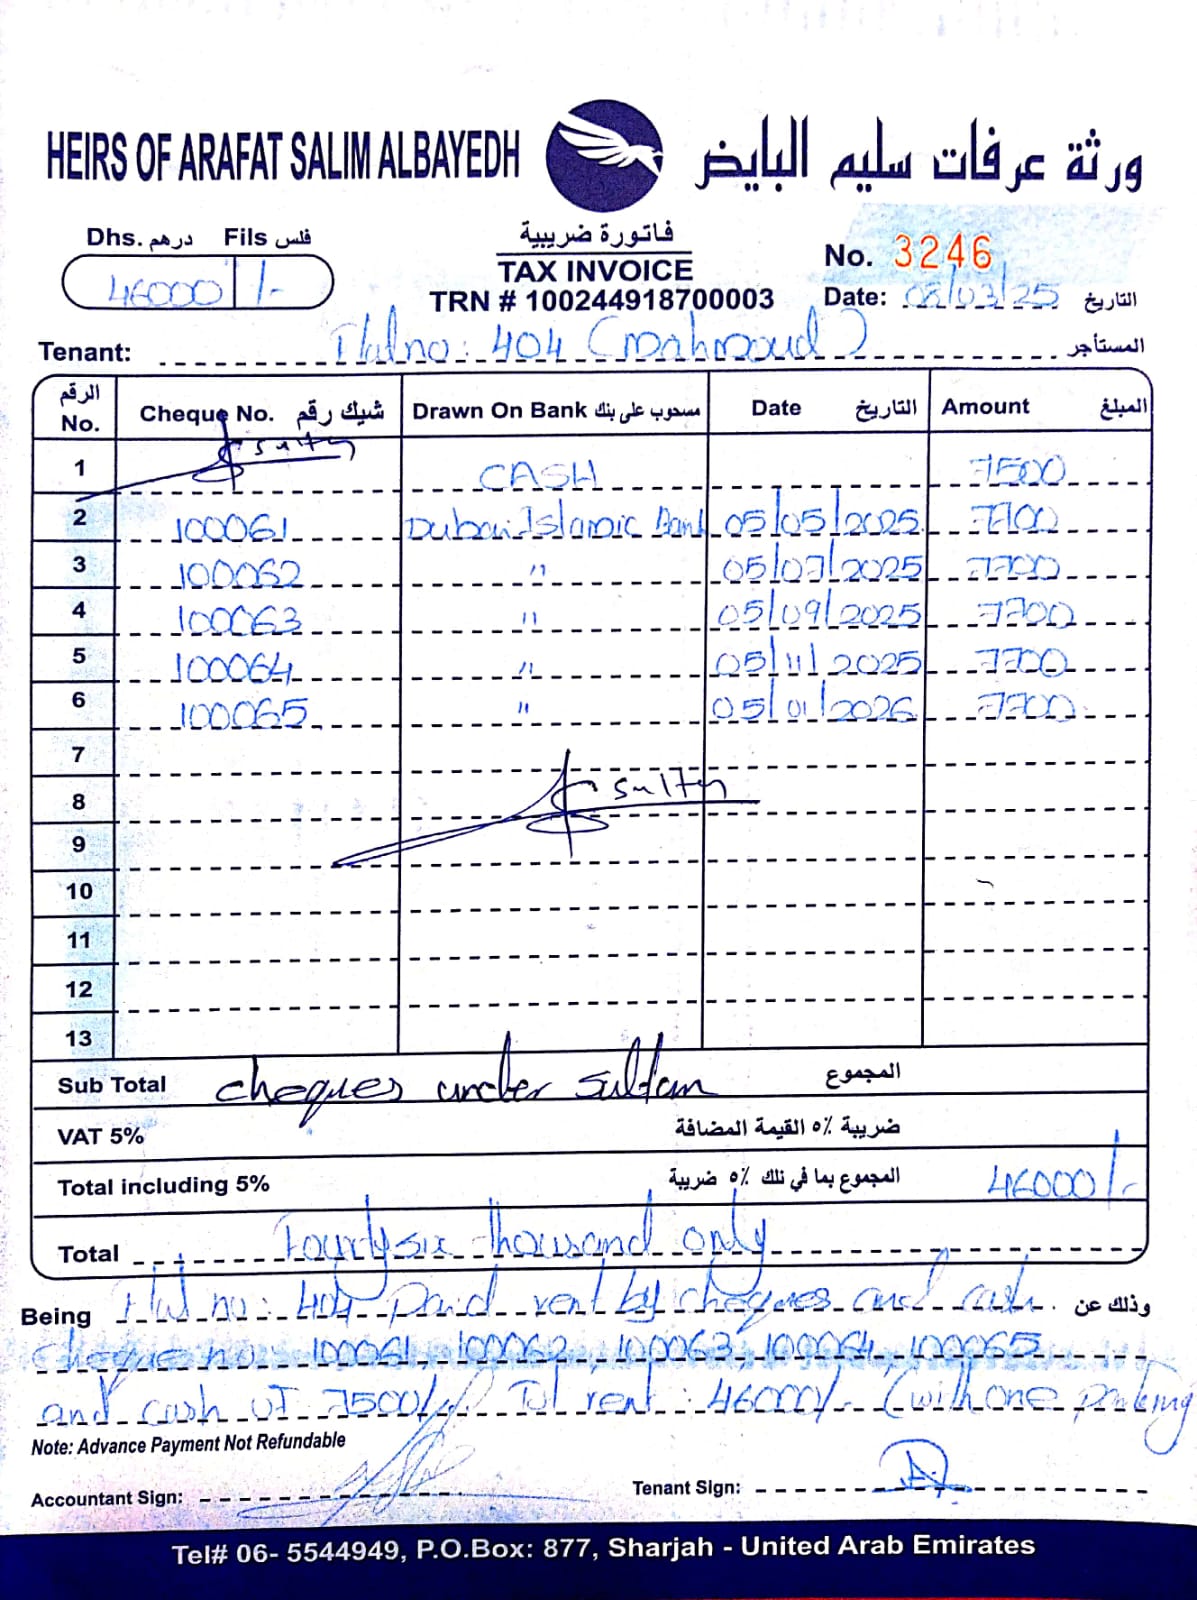 HEIRS OF ARAFAT SALIM ALBAYEDH ورثة عرفات سليم البايض
Dhs. درهم Fils فلس
46000/-
فاتورة ضريبية
TAX INVOICE
TRN # 100244918700003
No. 3246
Date: 05/03/25 التاريخ
Tenant: Flat no: 404 (Mahmoud) المستأجر
الرقم No. Cheque No. شيك رقم Drawn On Bank مسحوب على بنك Date التاريخ Amount المبلغ
1 CASH 7500
2 100061 Dubai Islamic Bank 05/05/2025 7700
3 100062 " 05/07/2025 7700
4 100063 " 05/09/2025 7700
5 100064 " 05/11/2025 7700
6 100065 " 05/01/2026 7700
7
8
9
10
11
12
13
Sub Total cheques under Sultan المجموع
VAT 5% ضريبة ٥% القيمة المضافة
Total including 5% المجموع بما في تلك ٥% ضريبة 46000/-
Total Fourtysix thousand only
Being Flat no: 404 Paid rent by cheques and cash. وذلك عن
cheque no: 100061, 100062, 100063, 100064, 100065
and cash of 7500/- Tol rent: 46000/- (with one parking
Note: Advance Payment Not Refundable
Accountant Sign: Tenant Sign:
Tel# 06- 5544949, P.O.Box: 877, Sharjah - United Arab Emirates